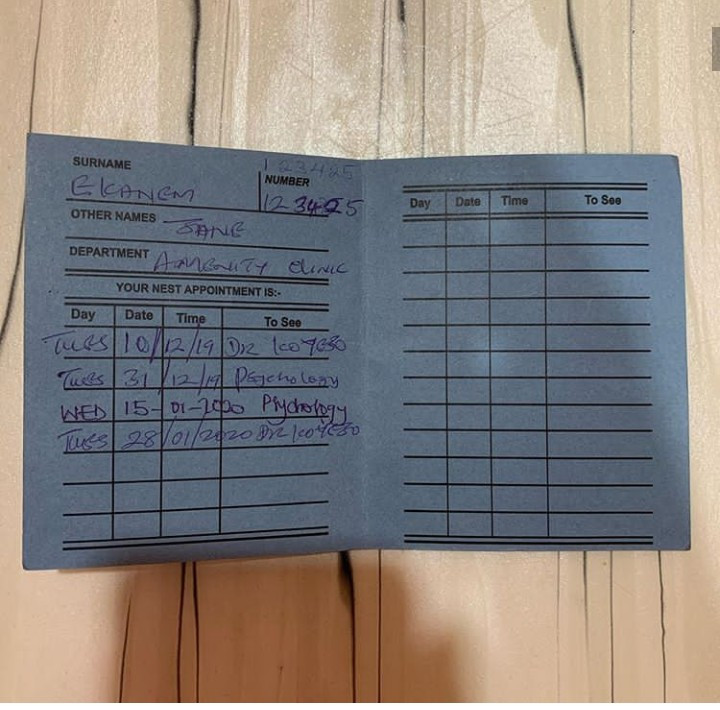 SURNAME 123425
EKANEM NUMBER
123425
OTHER NAMES JANE
DEPARTMENT AMENITY CLINIC
YOUR NEST APPOINTMENT IS:-
Day Date Time To See
TUES 10/12/19 DR
TUES 31/12/19 Psychology
WED 15-01-2020 Psychology
TUES 28/01/2020 DR
Day Date Time To See